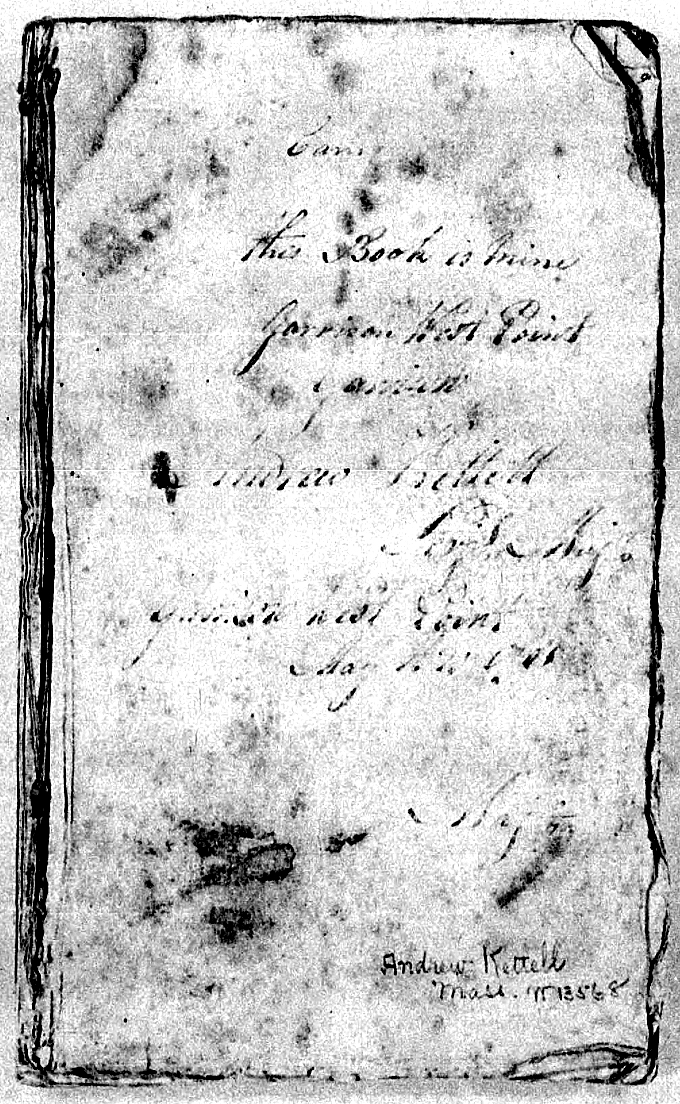 Cam
this Book is mine
Garrison West Point
Garrison
Andrew Kettell
Garrison West Point
May
Andrew Kettell
Mass. W13568